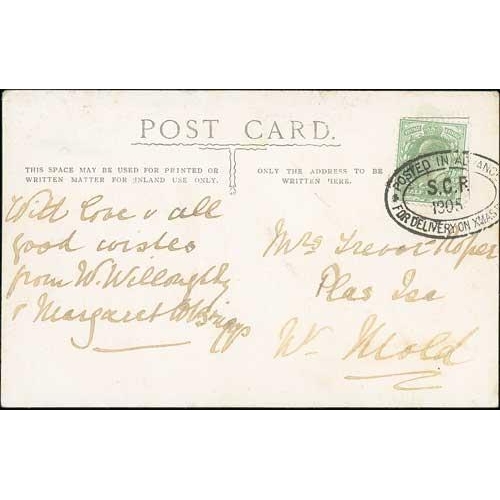 POST CARD.
THIS SPACE MAY BE USED FOR PRINTED OR
WRITTEN MATTER FOR INLAND USE ONLY.
ONLY THE ADDRESS TO BE
WRITTEN HERE.
With love & all
good wishes
from W. Willoughby
& Margaret Briggs
Mrs Trevor Roper
Plas Isa
Nr Mold
POSTED IN ADVANCE
S.C.R
1905
FOR DELIVERY ON XMAS